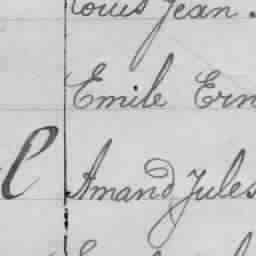 Louis Jean.
Emile Ern
C Amand Jules